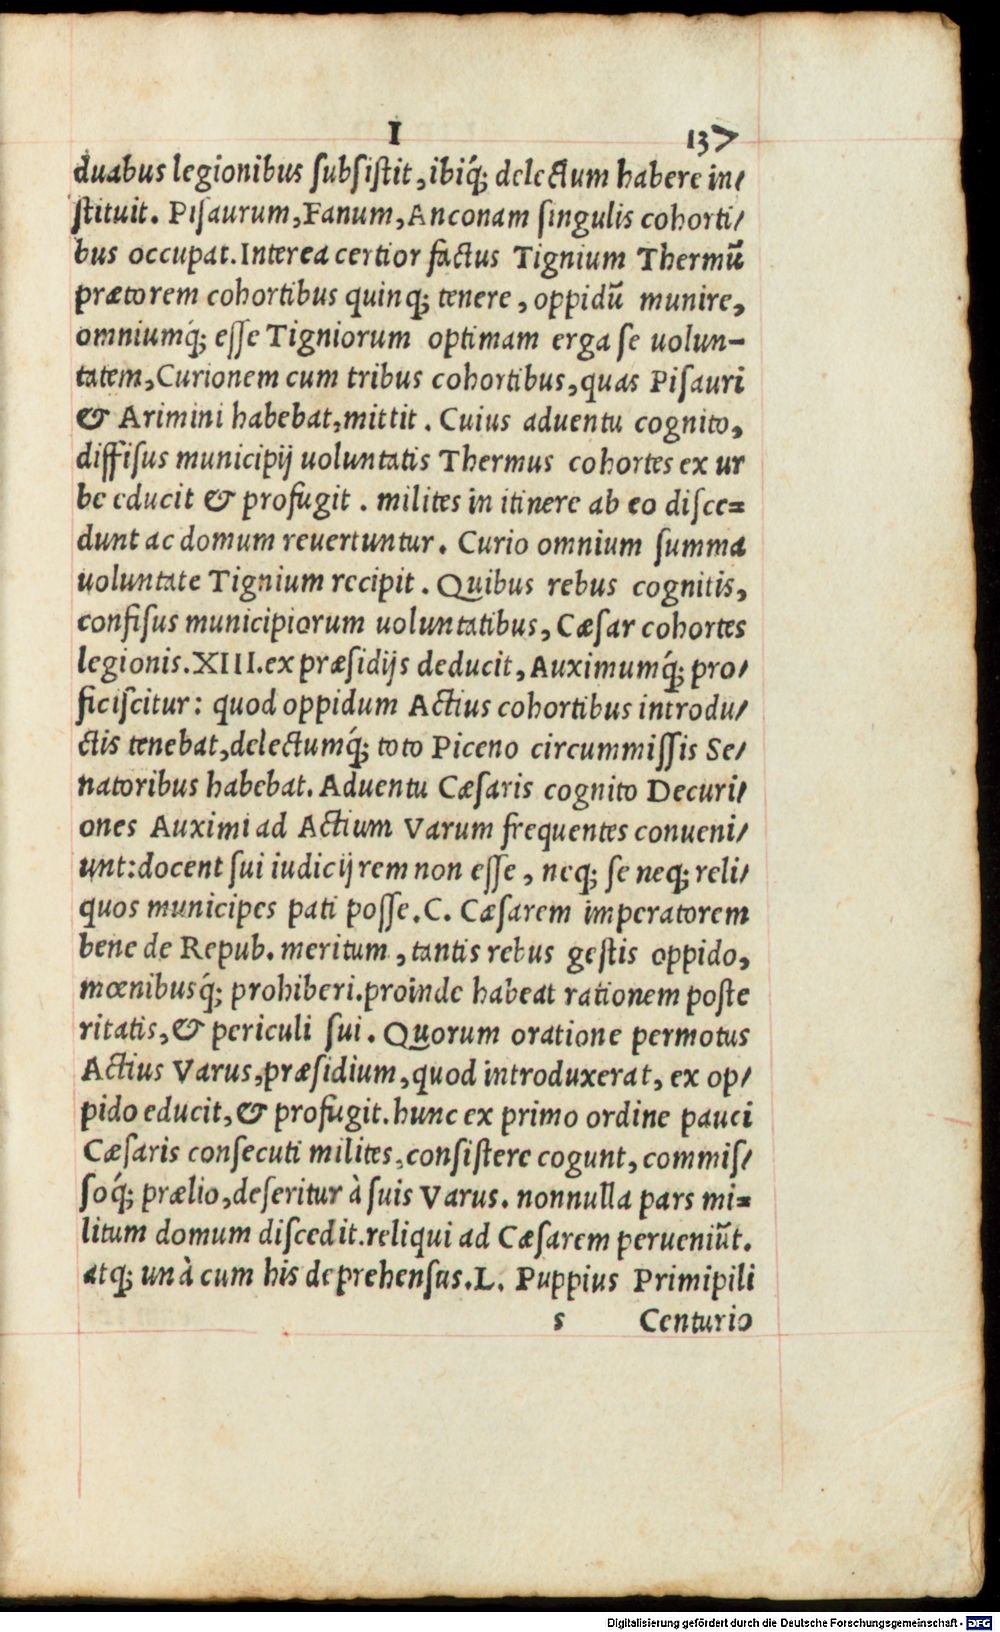 I 137
duabus legionibus ſubſiſtit, ibiq́; delectum habere in/
ſtituit. Piſaurum, Fanum, Anconam ſingulis cohorti/
bus occupat. Interea certior factus Tignium Thermū
prætorem cohortibus quinq; tenere, oppidū munire,
omniumq́; eſſe Tigniorum optimam erga ſe uolun-
tatem, Curionem cum tribus cohortibus, quas Piſauri
& Arimini habebat, mittit. Cuius aduentu cognito,
diffiſus municipij uoluntatis Thermus cohortes ex ur
be educit & profugit. milites in itinere ab eo diſce=
dunt ac domum reuertuntur. Curio omnium ſumma
uoluntate Tignium recipit. Quibus rebus cognitis,
confiſus municipiorum uoluntatibus, Cæſar cohortes
legionis. XIII. ex præſidijs deducit, Auximumq́; pro/
ficiſcitur: quod oppidum Actius cohortibus introdu/
ctis tenebat, delectumq́; toto Piceno circummiſſis Se/
natoribus habebat. Aduentu Cæſaris cognito Decuri/
ones Auximi ad Actium Varum frequentes conueni/
unt: docent ſui iudicij rem non eſſe, neq; ſe neq; reli/
quos municipes pati poſſe. C. Cæſarem imperatorem
bene de Repub. meritum, tantis rebus geſtis oppido,
mœnibusq́; prohiberi. proinde habeat rationem poſte
ritatis, & periculi ſui. Quorum oratione permotus
Actius Varus, præſidium, quod introduxerat, ex op/
pido educit, & profugit. hunc ex primo ordine pauci
Cæſaris conſecuti milites, conſiſtere cogunt, commiſ/
ſoq́; prælio, deſeritur à ſuis Varus. nonnulla pars mi=
litum domum diſcedit. reliqui ad Cæſarem perueniūt.
atq; unà cum his deprehenſus. L. Puppius Primipili
s Centurio
Digitalisierung gefördert durch die Deutsche Forschungsgemeinschaft - DFG